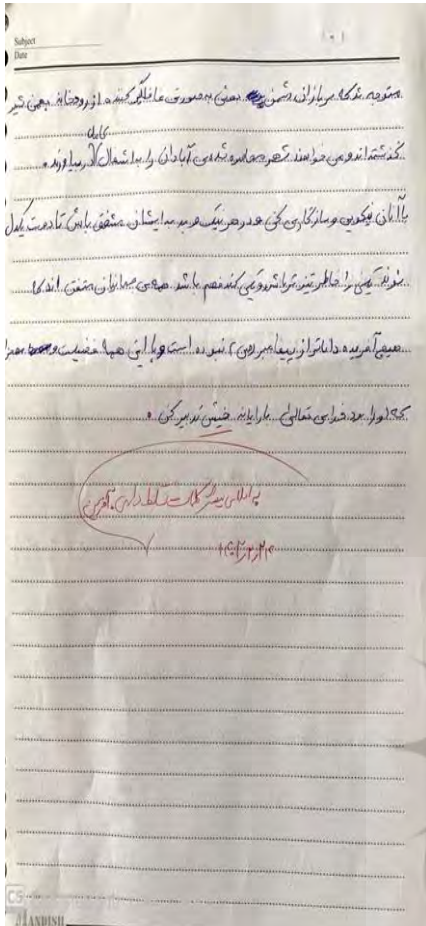 Subject
Date
متوجه شد که سربازانی دشمن به صورتی غافلگیر کننده از رودخانه بهمن شیر
کامل
گذشته‌اند و می‌خواهند شهر محاصره شده‌ی آبادان را به اشغال در بیاورند.
با آنان نیکویی و سازگاری کن و در هر نیک و بد به ایشان متفق باش تا دوست یکدل
شوند یکی را خاطر تیزتر باشد و یکی کند فهم باشد همه‌ی همازنان متفق اند که
هیچ آفریده داناتر از پیغامبر (ص) نبوده است و با این همه فضیلت و
که او را بود خدای تعالی با رایانه خویش تدبیر کن.
به املای بیشتر کلمات تسلط داری. آفرین
CS
ANDISH